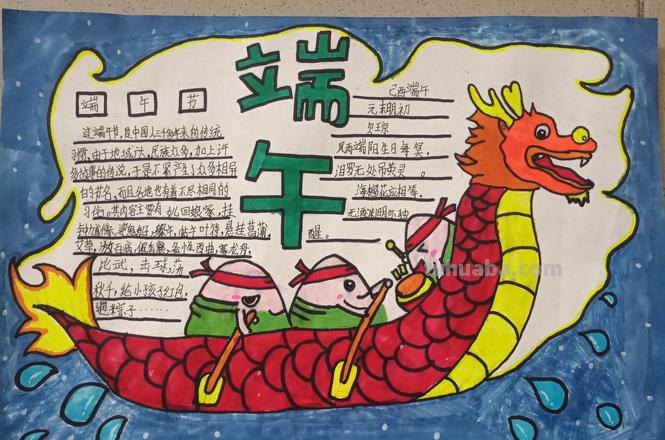 端午
端 午 节
过端午节,是中国人二千多年来的传统
习惯,由于地域广大,民族众多,加上许
多故事的传说,于是不紧产生了众多相异
的节名,而且各地也有着不尽相同的
习俗。其内容主要有:女儿回娘家,挂
钟馗像,迎鬼船,躲午,帖午叶符,悬挂菖蒲
艾草,游百病,佩香囊,备牲醴,赛龙舟,
比武,击球,荡
秋千,给小孩
粽子……
己酉端午
元末明初
贝琼
风雨端阳生晦冥,
汨罗无处吊英灵。
海榴花应相笑,
无酒渊明亦独
醒。
dimuaba.com